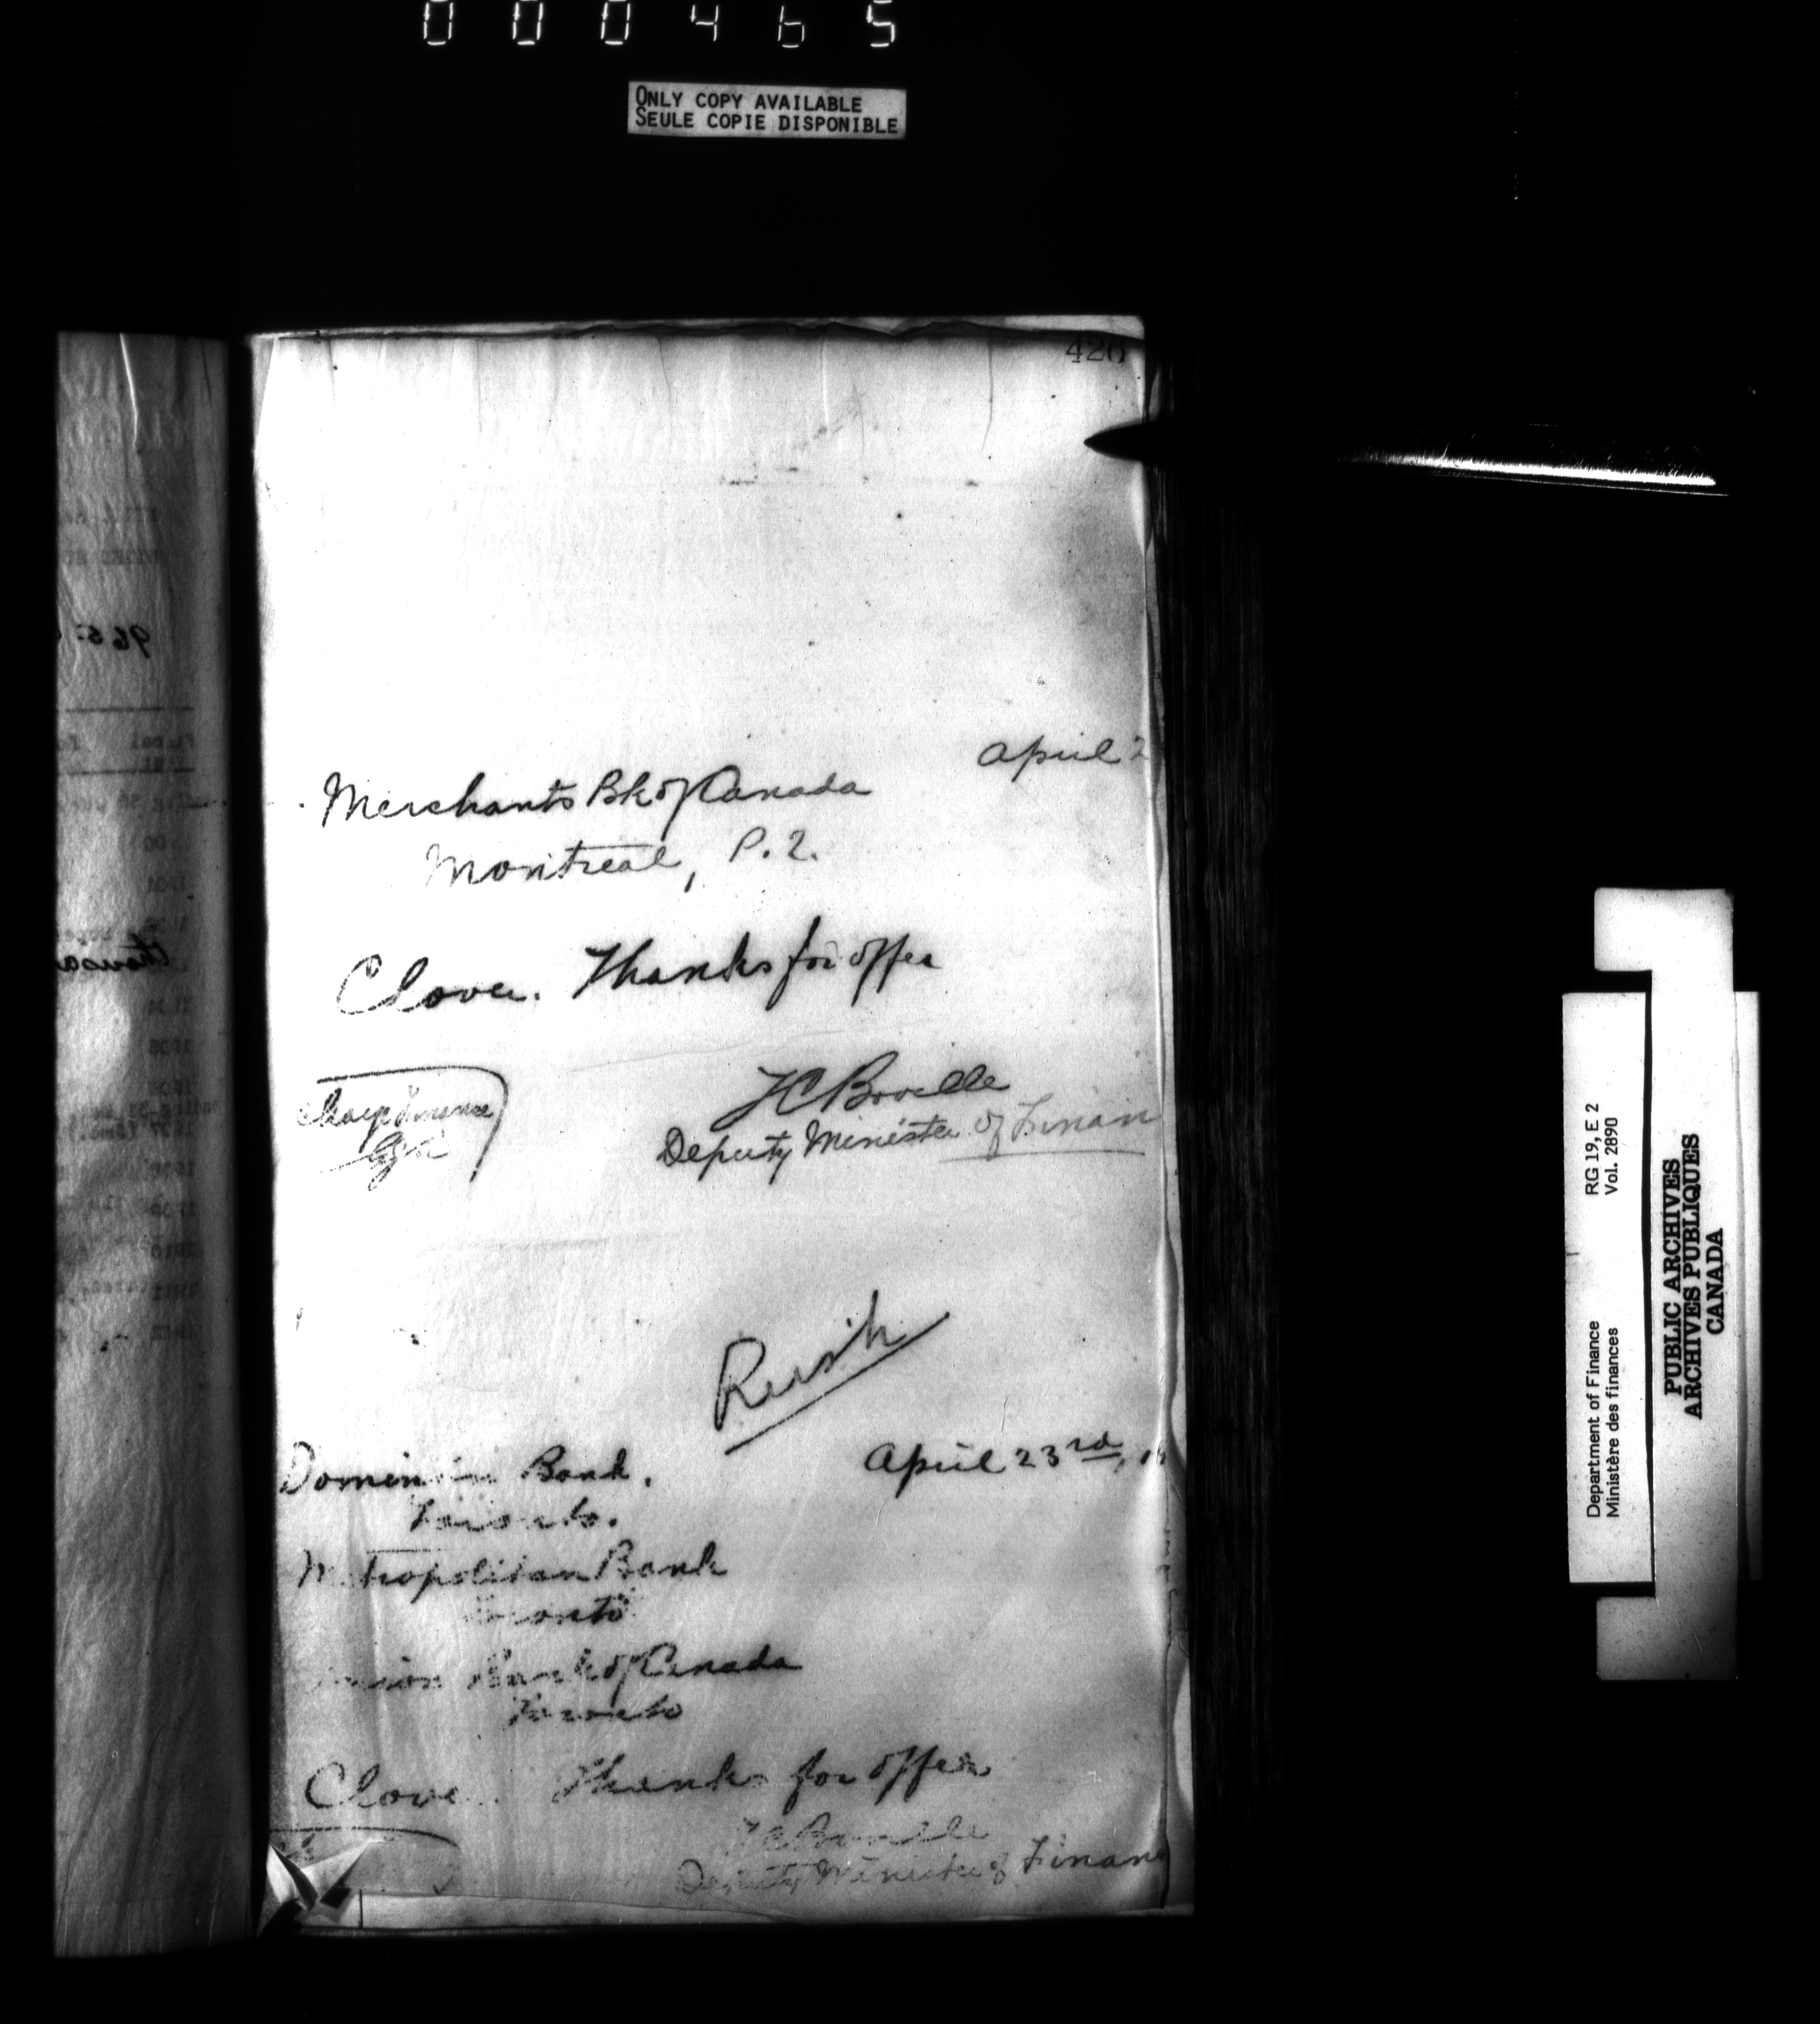 000465
ONLY COPY AVAILABLE
SEULE COPIE DISPONIBLE
426
April 2
Merchants Bk of Canada
Montreal, P.2.
Clover. Thanks for offer
TC Boville
Deputy Minister of Finan
Charge Finance
Rush
April 23rd, 19
Dominion Bank.
Toronto.
Metropolitan Bank
Toronto
Union Bank of Canada
Toronto
Clover. Thanks for offer
TC Boville
Deputy Minister of Finan
Department of Finance
Ministère des finances
RG 19, E 2
Vol. 2890
PUBLIC ARCHIVES
ARCHIVES PUBLIQUES
CANADA